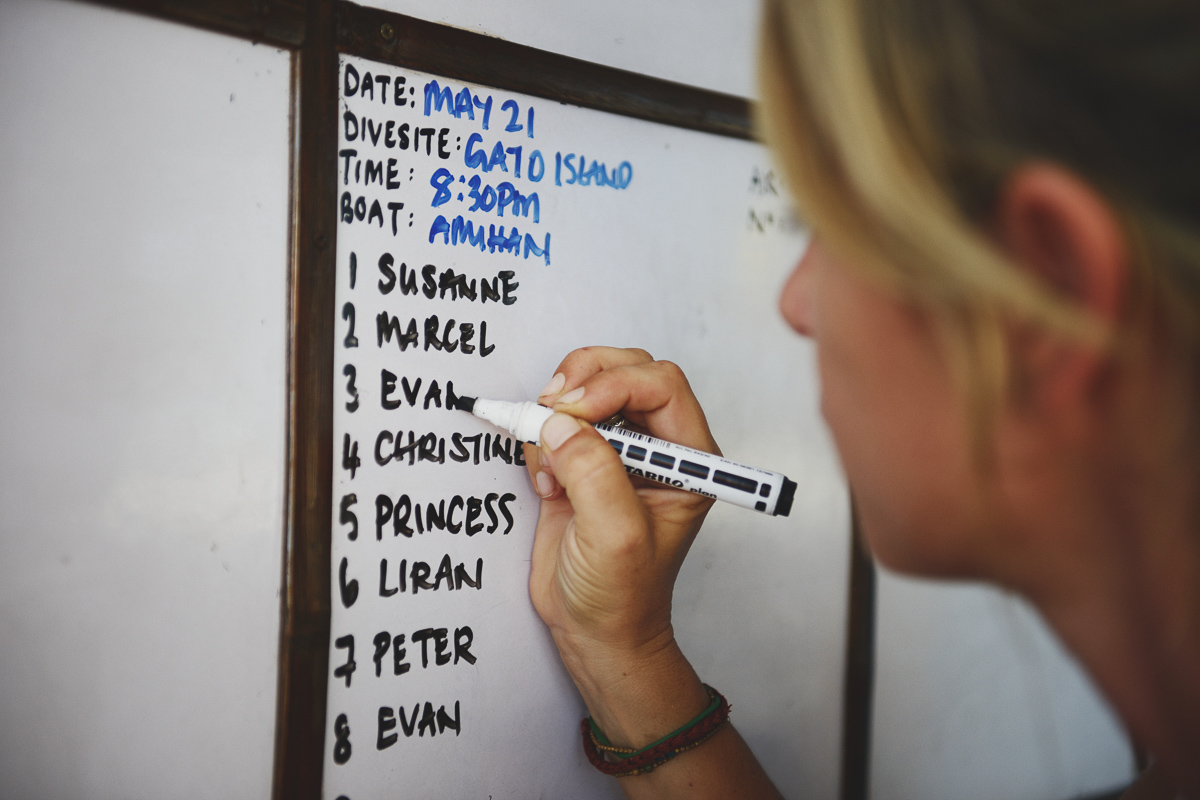 DATE: MAY 21
DIVESITE: GATO ISLAND
TIME: 8:30PM
BOAT: AMIHAN
1 SUSANNE
2 MARCEL
3 EVAN
4 CHRISTINE
5 PRINCESS
6 LIRAN
7 PETER
8 EVAN
STABILO plan